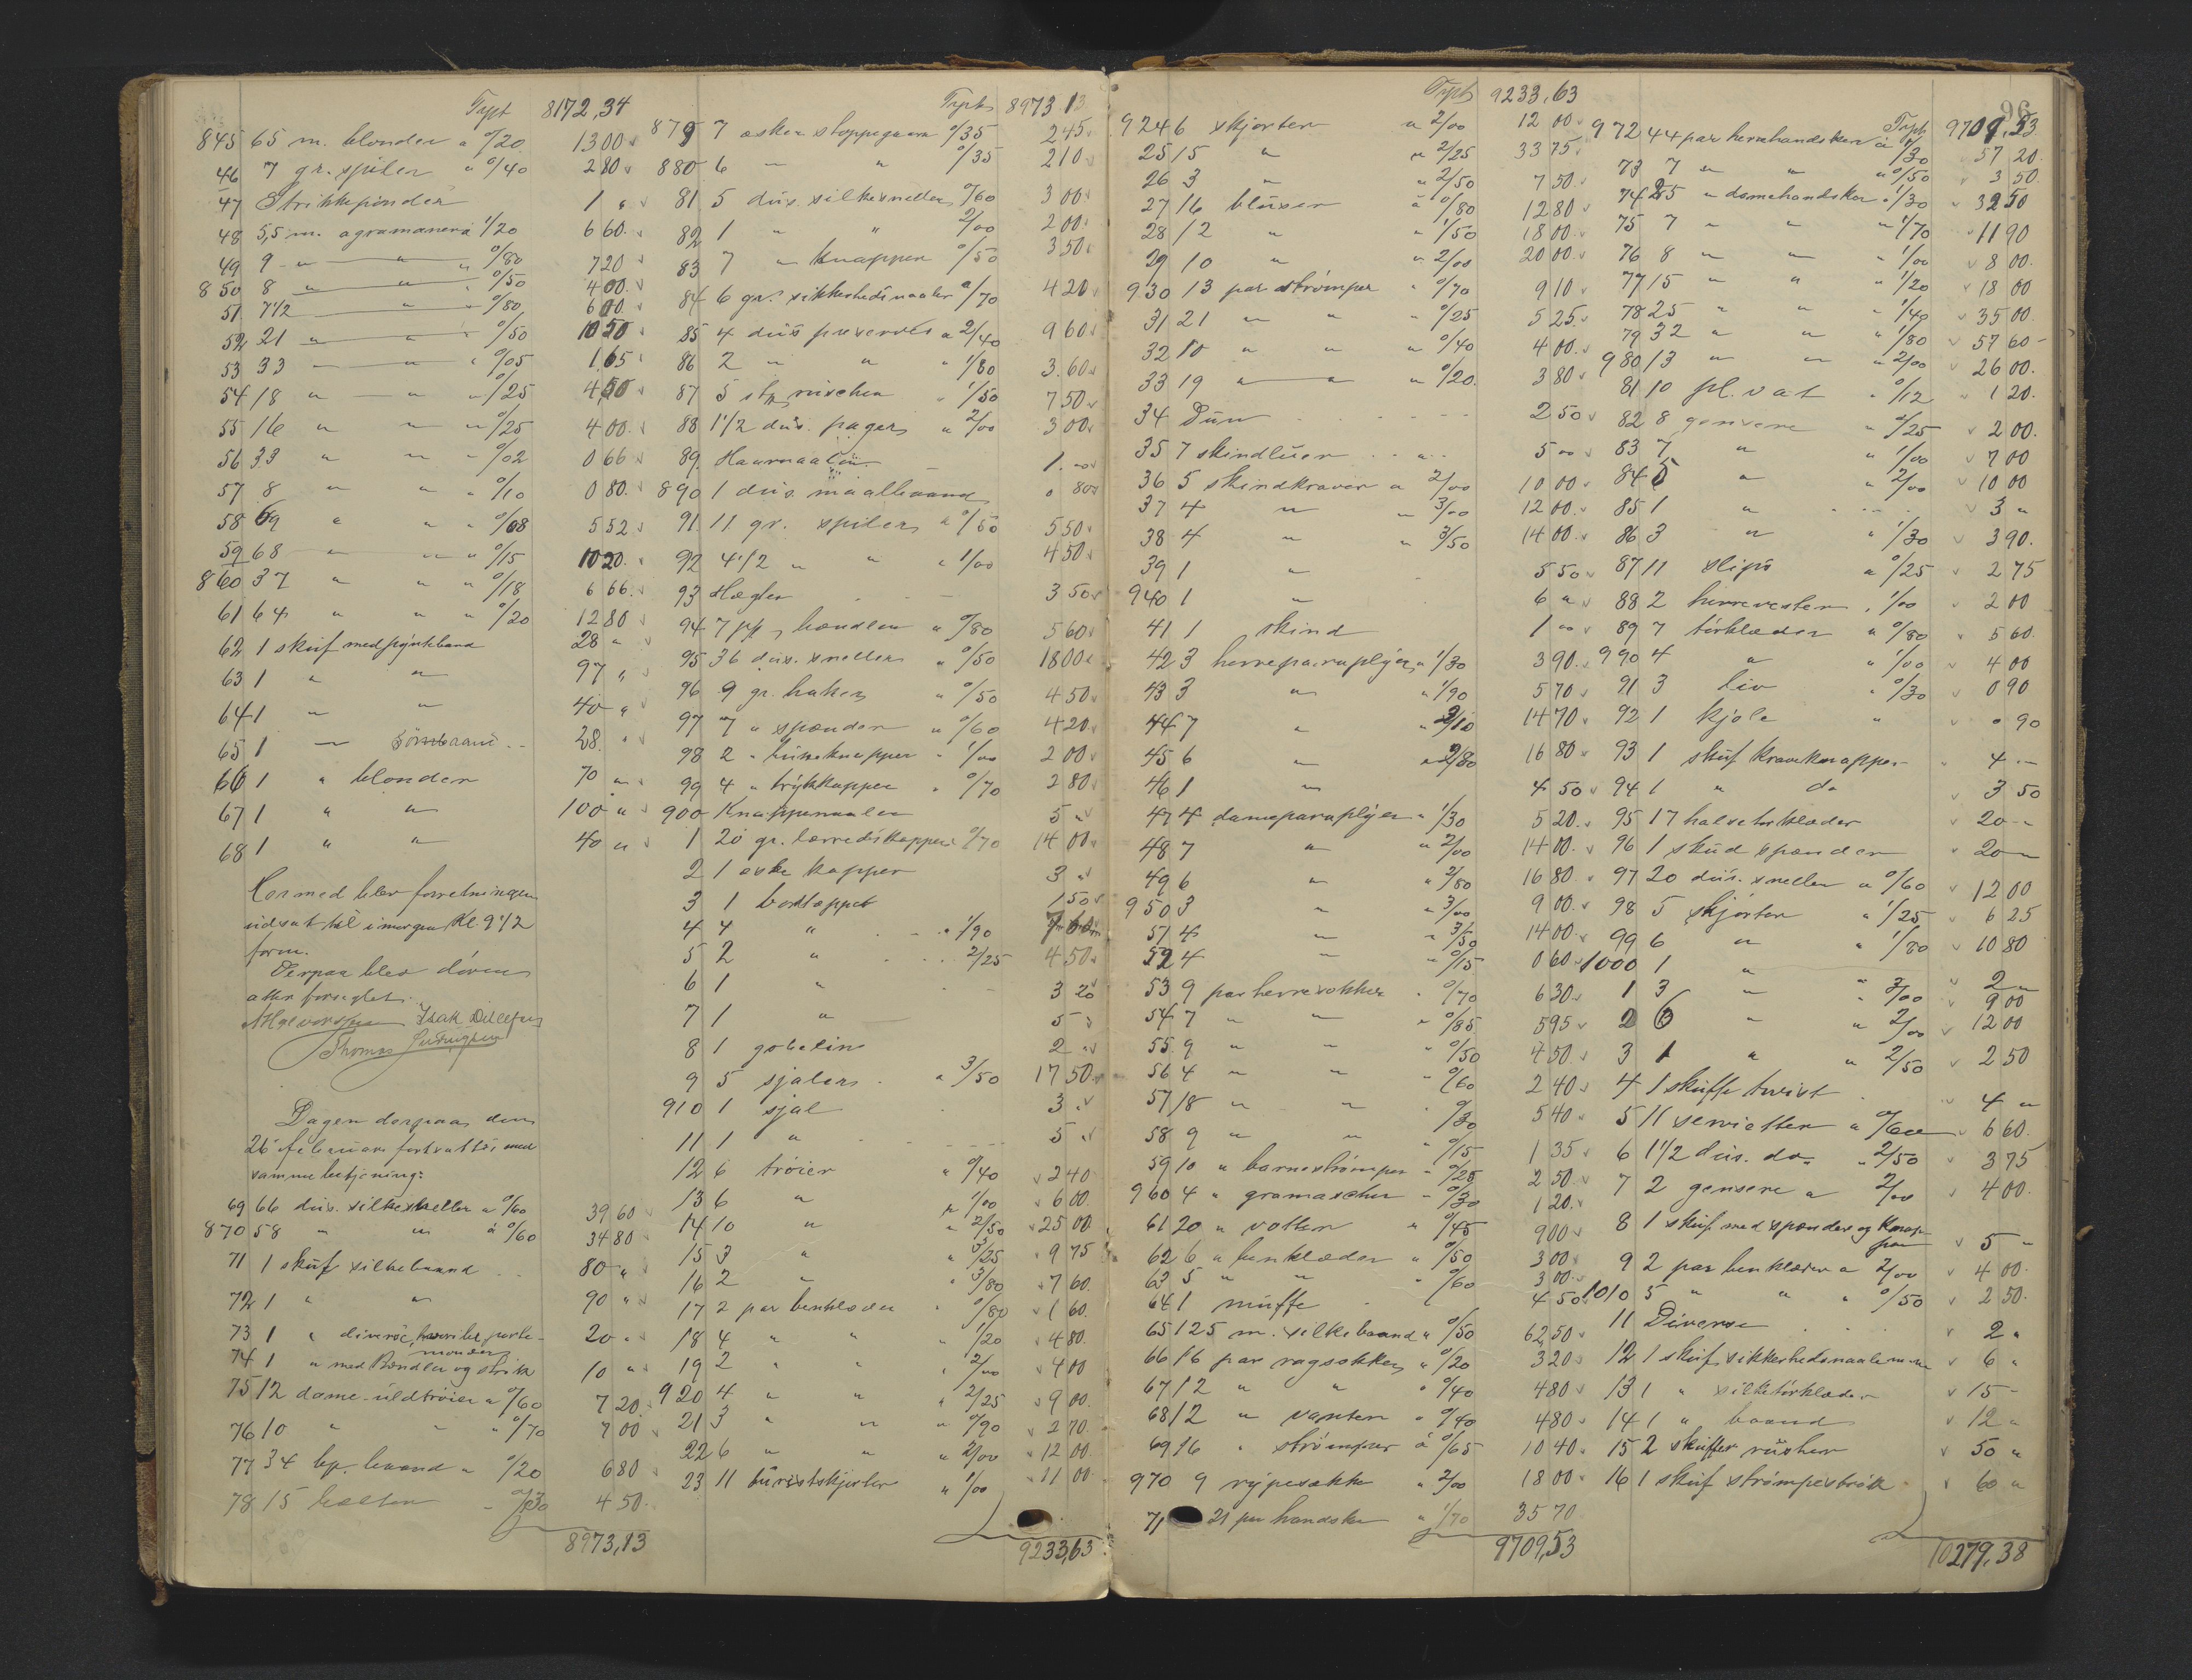 Trpt 8172,34
845 65 m. blonder a 0/20 13 00
46 7 gr. spiler " 0/40 2 80
47 Strikkepinder 1 "
48 5,5 m. agramaner a 1/20 6 60
49 9 " " " 0/80 7 20
850 8 " " " 0/50 4 00
51 7 1/2 " " 0/80 6 00
52 21 " " " 0/50 10 50
53 33 " " 0/05 1 65
54 18 " " " 0/25 4,50
55 16 " " " 0/25 4 00
56 33 " " " 0/02 0 66
57 8 " " " 0/10 0 80
58 69 " " " 0/08 5 52
59 68 " " " 0/15 10 20
860 37 " " " 0/18 6 66
61 64 " " " 0/20 12 80
62 1 skuf med pyntebaand 28 "
63 1 " " 97 "
64 1 " " 40 "
65 1 " 28 "
66 1 " blonder 70 "
67 1 " " 100 "
68 1 " " 40 "
Hermed blev forretningen
udsat til imorgen Kl. 9 1/2
form.
Derpaa blev døren
atter forseglet.
Isak
Thomas
Dagen derpaa den
26 februar fortsattes med
samme betjening:
69 66 dus. silkesneller a 0/60 39 60
870 58 " " a 0/60 34 80
71 1 skuf silkebaand 80 "
72 1 " " 90 "
73 1 " diverse, porte-
monæer 20 "
74 1 " med Bændler og strik 10 "
75 12 dame-uldtrøier a 0/60 7 20
76 10 " " " 0/70 7 00
77 34 bp. baand " 0/20 6 80
78 15 belter " 0/30 4 50
8973,13
Trpt 8973 13
879 7 æsker stoppegarn 0/35 2 45
880 6 " " 0/35 2 10
81 5 dus. silkesneller 0/60 3 00
82 1 " " 2/00 2 00
83 7 " knapper 0/50 3 50
84 6 gr. sikkerhedsnaaler a 0/70 4 20
85 4 dus preserves a 2/40 9 60
86 2 " " " 1/80 3 60
87 5 stk ruscher " 1/50 7 50
88 1 1/2 dus. pagers " 2/00 3 00
89 Haarnaaler 1 00
890 1 dus. maalbaand 0 80
91 11 gr. spiler a 0/50 5 50
92 4 1/2 " " " 1/00 4 50
93 Hægter 3 50
94 7 pk, bændler " 0/80 5 60
95 36 dus. sneller " 0/50 18 00
96 9 gr. haker " 0/50 4 50
97 7 " spænder " 0/60 4 20
98 2 " knapper " 1/00 2 00
99 4 " trykkapper " 0/70 2 80
900 Knappenaaler 5 "
1 20 gr. lærredsknapper 0/70 14 00
2 1 æske kapper 3 "
3 1 bordtæppe 1 50
4 4 " " 1/90 7 60
5 2 " 2/25 4 50
6 1 " 3 20
7 1 " 5 "
8 1 gobelin 2 "
9 5 sjaler " 3/50 17 50
910 1 sjal 3 "
11 1 " 5 "
12 6 trøier " 0/40 2 40
13 6 " " 1/00 6 00
14 10 " " 2/50 25 00
15 3 " " 3/25 9 75
16 2 " " 3/80 7 60
17 2 par benklæder " 0/80 1 60
18 4 " " " 1/20 4 80
19 2 " " " 2/00 4 00
920 4 " " " 2/25 9 00
21 3 " " " 0/90 2 70
22 6 " " " 2/00 12 00
23 11 turistskjorter " 1/00 11 00
9233,63
Trpt 9233,63
924 6 skjorter a 2/00 12 00
25 15 " " 2/25 33 75
26 3 " " 2/50 7 50
27 16 bluser a 0/80 12 80
28 12 " " 1/50 18 00
29 10 " " 2/00 20 00
930 13 par strømper " 0/70 9 10
31 21 " " " 0/25 5 25
32 10 " " " 0/40 4 00
33 19 " " " 0/20 3 80
34 Dun 2 50
35 7 skindluer 5 00
36 5 skindkraver a 2/00 10 00
37 4 " " 3/00 12 00
38 4 " " 3/50 14 00
39 1 " 5 50
940 1 " 6 "
41 1 skind 1 00
42 3 herreparaplyer " 1/30 3 90
43 3 " " 1/90 5 70
44 7 " " 2/10 14 70
45 6 " " 2/80 16 80
46 1 " 4 50
47 4 dameparaplyer " 1/30 5 20
48 7 " " 2/00 14 00
49 6 " " 2/80 16 80
950 3 " " 3/00 9 00
51 4 " " 3/50 14 00
52 4 " " 0/15 0 60
53 9 par herresokker " 0/70 6 30
54 7 " " " 0/85 5 95
55 9 " " " 0/50 4 50
56 4 " " " 0/60 2 40
57 18 " " " 0/30 5 40
58 9 " " " 0/15 1 35
59 10 " barnestrømper " 0/25 2 50
960 4 " gramascher " 0/30 1 20
61 20 " votter " 0/45 9 00
62 6 " benklæder " 0/50 3 00
63 5 " " " 0/60 3 00
64 1 muffe 4 50
65 125 m. silkebaand " 0/50 62 50
66 16 par ragsokker " 0/20 3 20
67 12 " " " 0/40 4 80
68 12 " vanter " 0/40 4 80
69 16 " strømper a 0/65 10 40
970 9 rypesække " 2/00 18 00
71 21 par handsker " 1/70 35 70
9709,53
96
Trpt 9709,53
972 44 par herrehandsker a 1/30 57 20
73 7 " " " 0/50 3 50
74 25 " damehandsker " 1/30 32 50
75 7 " " " 1/70 11 90
76 8 " " " 1/00 8 00
77 15 " " " 1/20 18 00
78 25 " " " 1/40 35 00
79 32 " " " 1/80 57 60
980 13 " " " 2/00 26 00
81 10 pl. vat " 0/12 1 20
82 8 gensere " 0/25 2 00
83 7 " " 1/00 7 00
84 5 " " 2/00 10 00
85 1 " 3 "
86 3 " " 1/30 3 90
87 11 slips a 0/25 2 75
88 2 herrevester " 1/00 2 00
89 7 tørklæder " 0/80 5 60
990 4 " " 1/00 4 00
91 3 liv " 0/30 0 90
92 1 kjole " 0 90
93 1 skuf kraveknapper 4 "
94 1 " do 3 50
95 17 halstørklæder 20 "
96 1 skud spænder 20 "
97 20 dus. sneller a 0/60 12 00
98 5 skjørter " 1/25 6 25
99 6 " " 1/80 10 80
1000 1 " 2 "
1 3 " " 3/00 9 00
2 6 " " 2/00 12 00
3 1 " " 2/50 2 50
4 1 skuffe twist 4 "
5 11 servietter a 0/60 6 60
6 1 1/2 dus. do. " 2/50 3 75
7 2 gensere a 2/00 4 00
8 1 skuf med spænder og knap-
per 5 "
9 2 par benklæder a 2/00 4 00
1010 5 " " " 0/50 2 50
11 Diverse 2 "
12 1 skuf sikkerhedsnaale m.m 6 "
13 1 " silketørklæder 15 "
14 1 " baand 12 "
15 2 skuffer rusher 50 "
16 1 skuf strømpestrik 60 "
10279,38